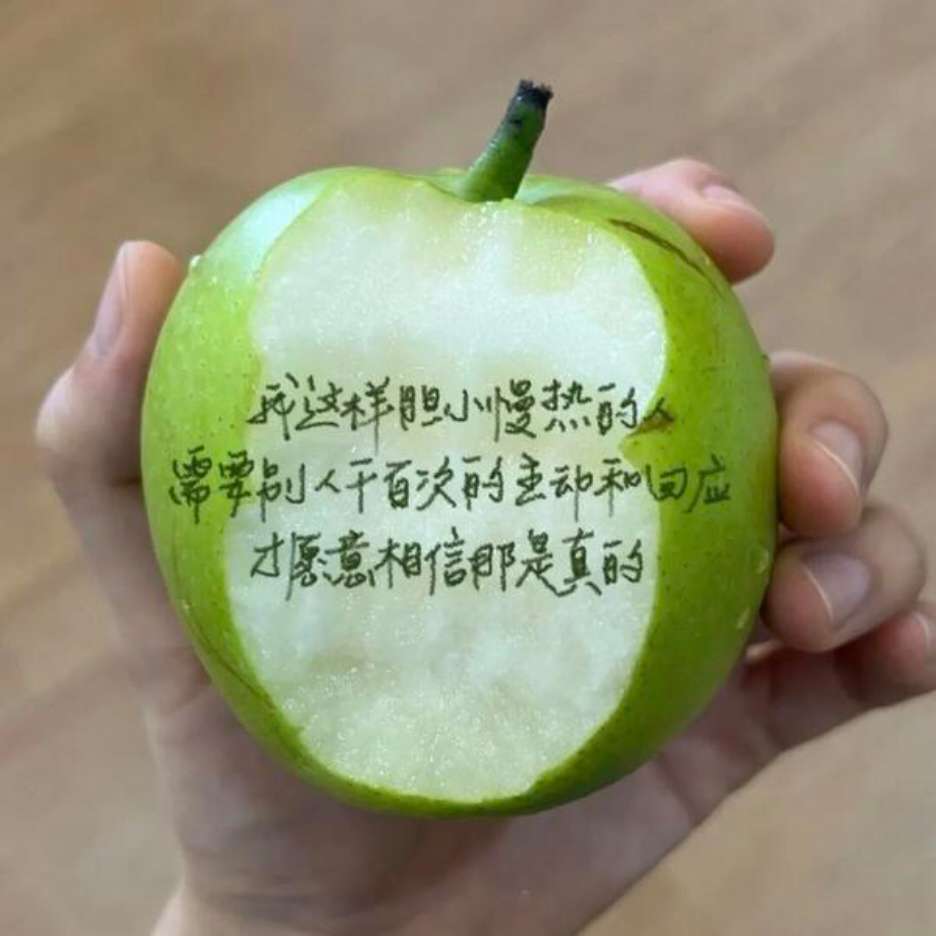 我这样胆小慢热的人
需要别人千百次的主动和回应
才愿意相信那是真的